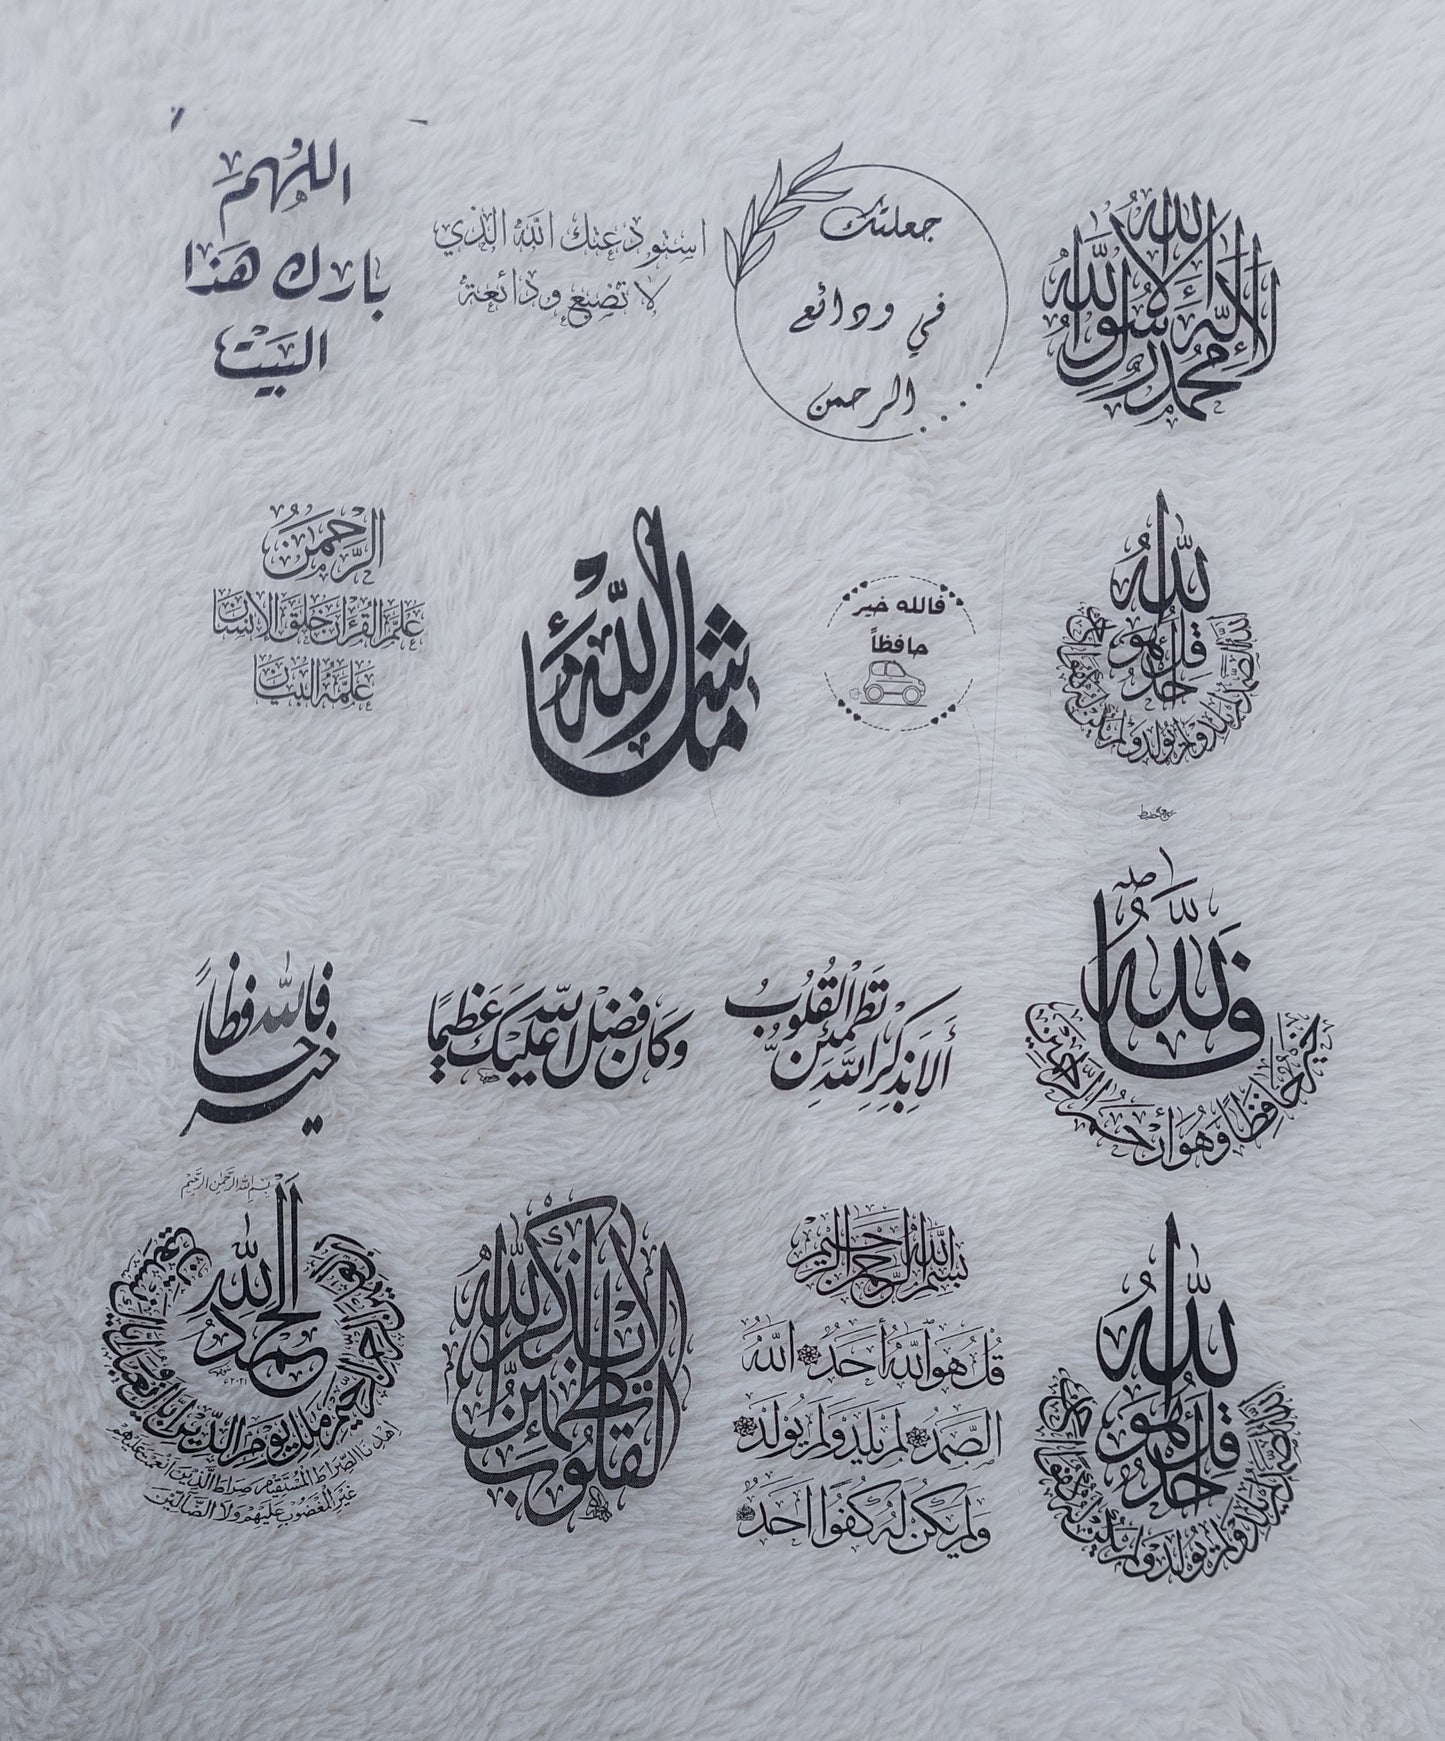 اللهم
بارك هَذا
البَيْت
استودعتك اللّه الذي
لا تضيع ودائعهُ
جعلتك
في ودائع
الرحمن
لا إله إلا الله
محمد رسول الله
الرَّحْمَنُ
عَلَّمَ القُرْءَانَ خَلَقَ الإِنسَانَ
عَلَّمَهُ البَيَانَ
ما شاء اللّه
فالله خير
حافظاً
قل هو الله أحد
الله الصمد لم يلد ولم يولد ولم يكن له كفوا أحد
فالله خير
حافظاً
وَكَانَ فَضْلُ اللّه عَلَيْكَ عَظِيمًا
أَلَا بِذِكْرِ اللَّهِ
تَطْمَئِنُّ الْقُلُوبُ
فَاللَّهُ
خَيْرٌ حَافِظًا وَهُوَ أَرْحَمُ الرَّاحِمِينَ
بِسْمِ اللهِ الرَّحْمَنِ الرَّحِيْمِ
الحمد لله
رب العالمين الرحمن الرحيم ملك يوم الدين إياك نعبد وإياك نستعين
اهْدِنَا الصِّرَاطَ الْمُسْتَقِيْمَ صِرَاطَ الَّذِيْنَ أَنْعَمْتَ عَلَيْهِمْ
غَيْرِ الْمَغْضُوْبِ عَلَيْهِمْ وَلَا الضَّالِّيْنَ
ألا بذكر الله
تطمئن
القلوب
بسم الله الرحمن الرحيم
قُلْ هُوَ اللَّهُ أَحَدٌ اللَّهُ
الصَّمَدُ لَمْ يَلِدْ وَلَمْ يُولَدْ
وَلَمْ يَكُن لَّهُ كُفُوًا أَحَدٌ
قل هو الله أحد
الله الصمد لم يلد ولم يولد ولم يكن له كفوا أحد